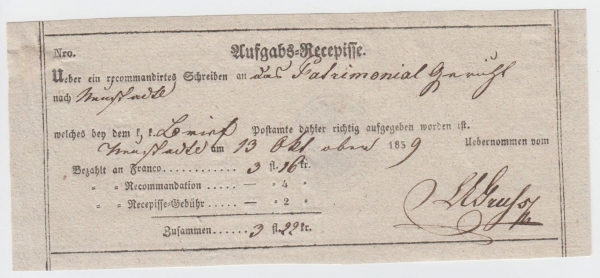 Nro. Aufgabs-Recepisse.
Ueber ein recommandirtes Schreiben an das Patrimonial Gericht
nach Neustadtl
welches bey dem k. k. Brief Postamte dahier richtig aufgegeben worden ist.
Neustadtl am 13 Oktober 1859 Uebernommen vom
Bezahlt an Franco............ 3 fl. 16 kr.
" " Recommandation ..... — " 4 "
" " Recepisse-Gebühr ..... — " 2 "
Zusammen ..... 3 fl. 22 kr.